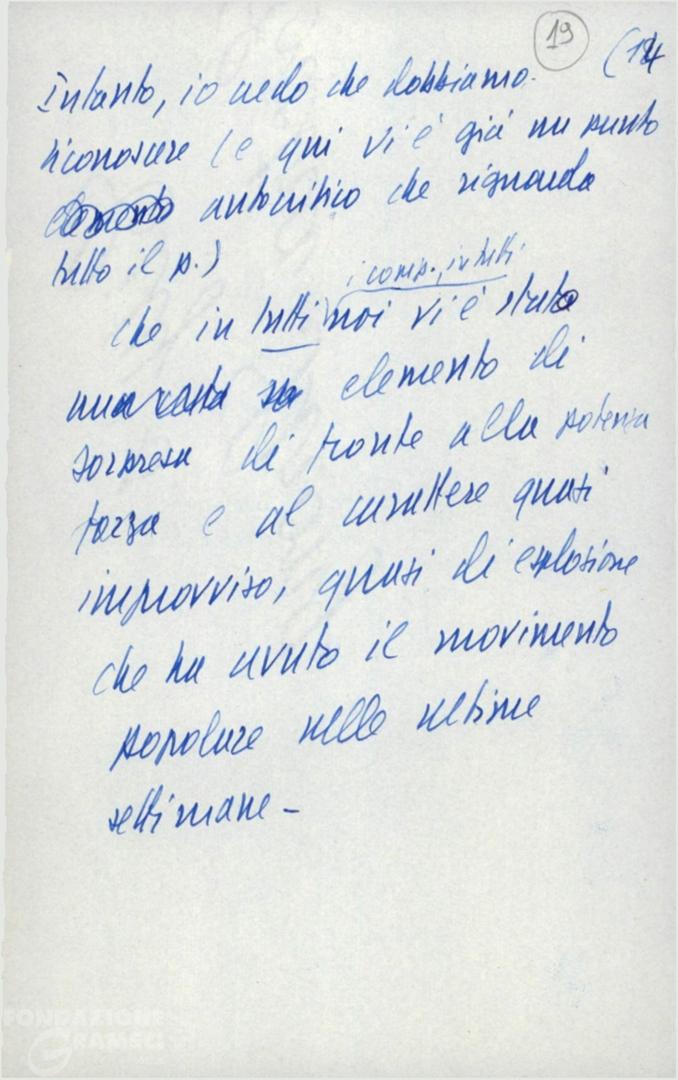 19
(14
Intanto, io credo che dobbiamo
riconoscere (e qui vi è già un punto
autocritico che riguarda
tutto il p.)
i comp., in tutti
che in tutti noi vi è stato
elemento di
sorpresa di fronte alla potenza
forza e al carattere quasi
improvviso, quasi di esplosione
che ha avuto il movimento
popolare nelle ultime
settimane -
FONDAZIONE
GRAMSCI